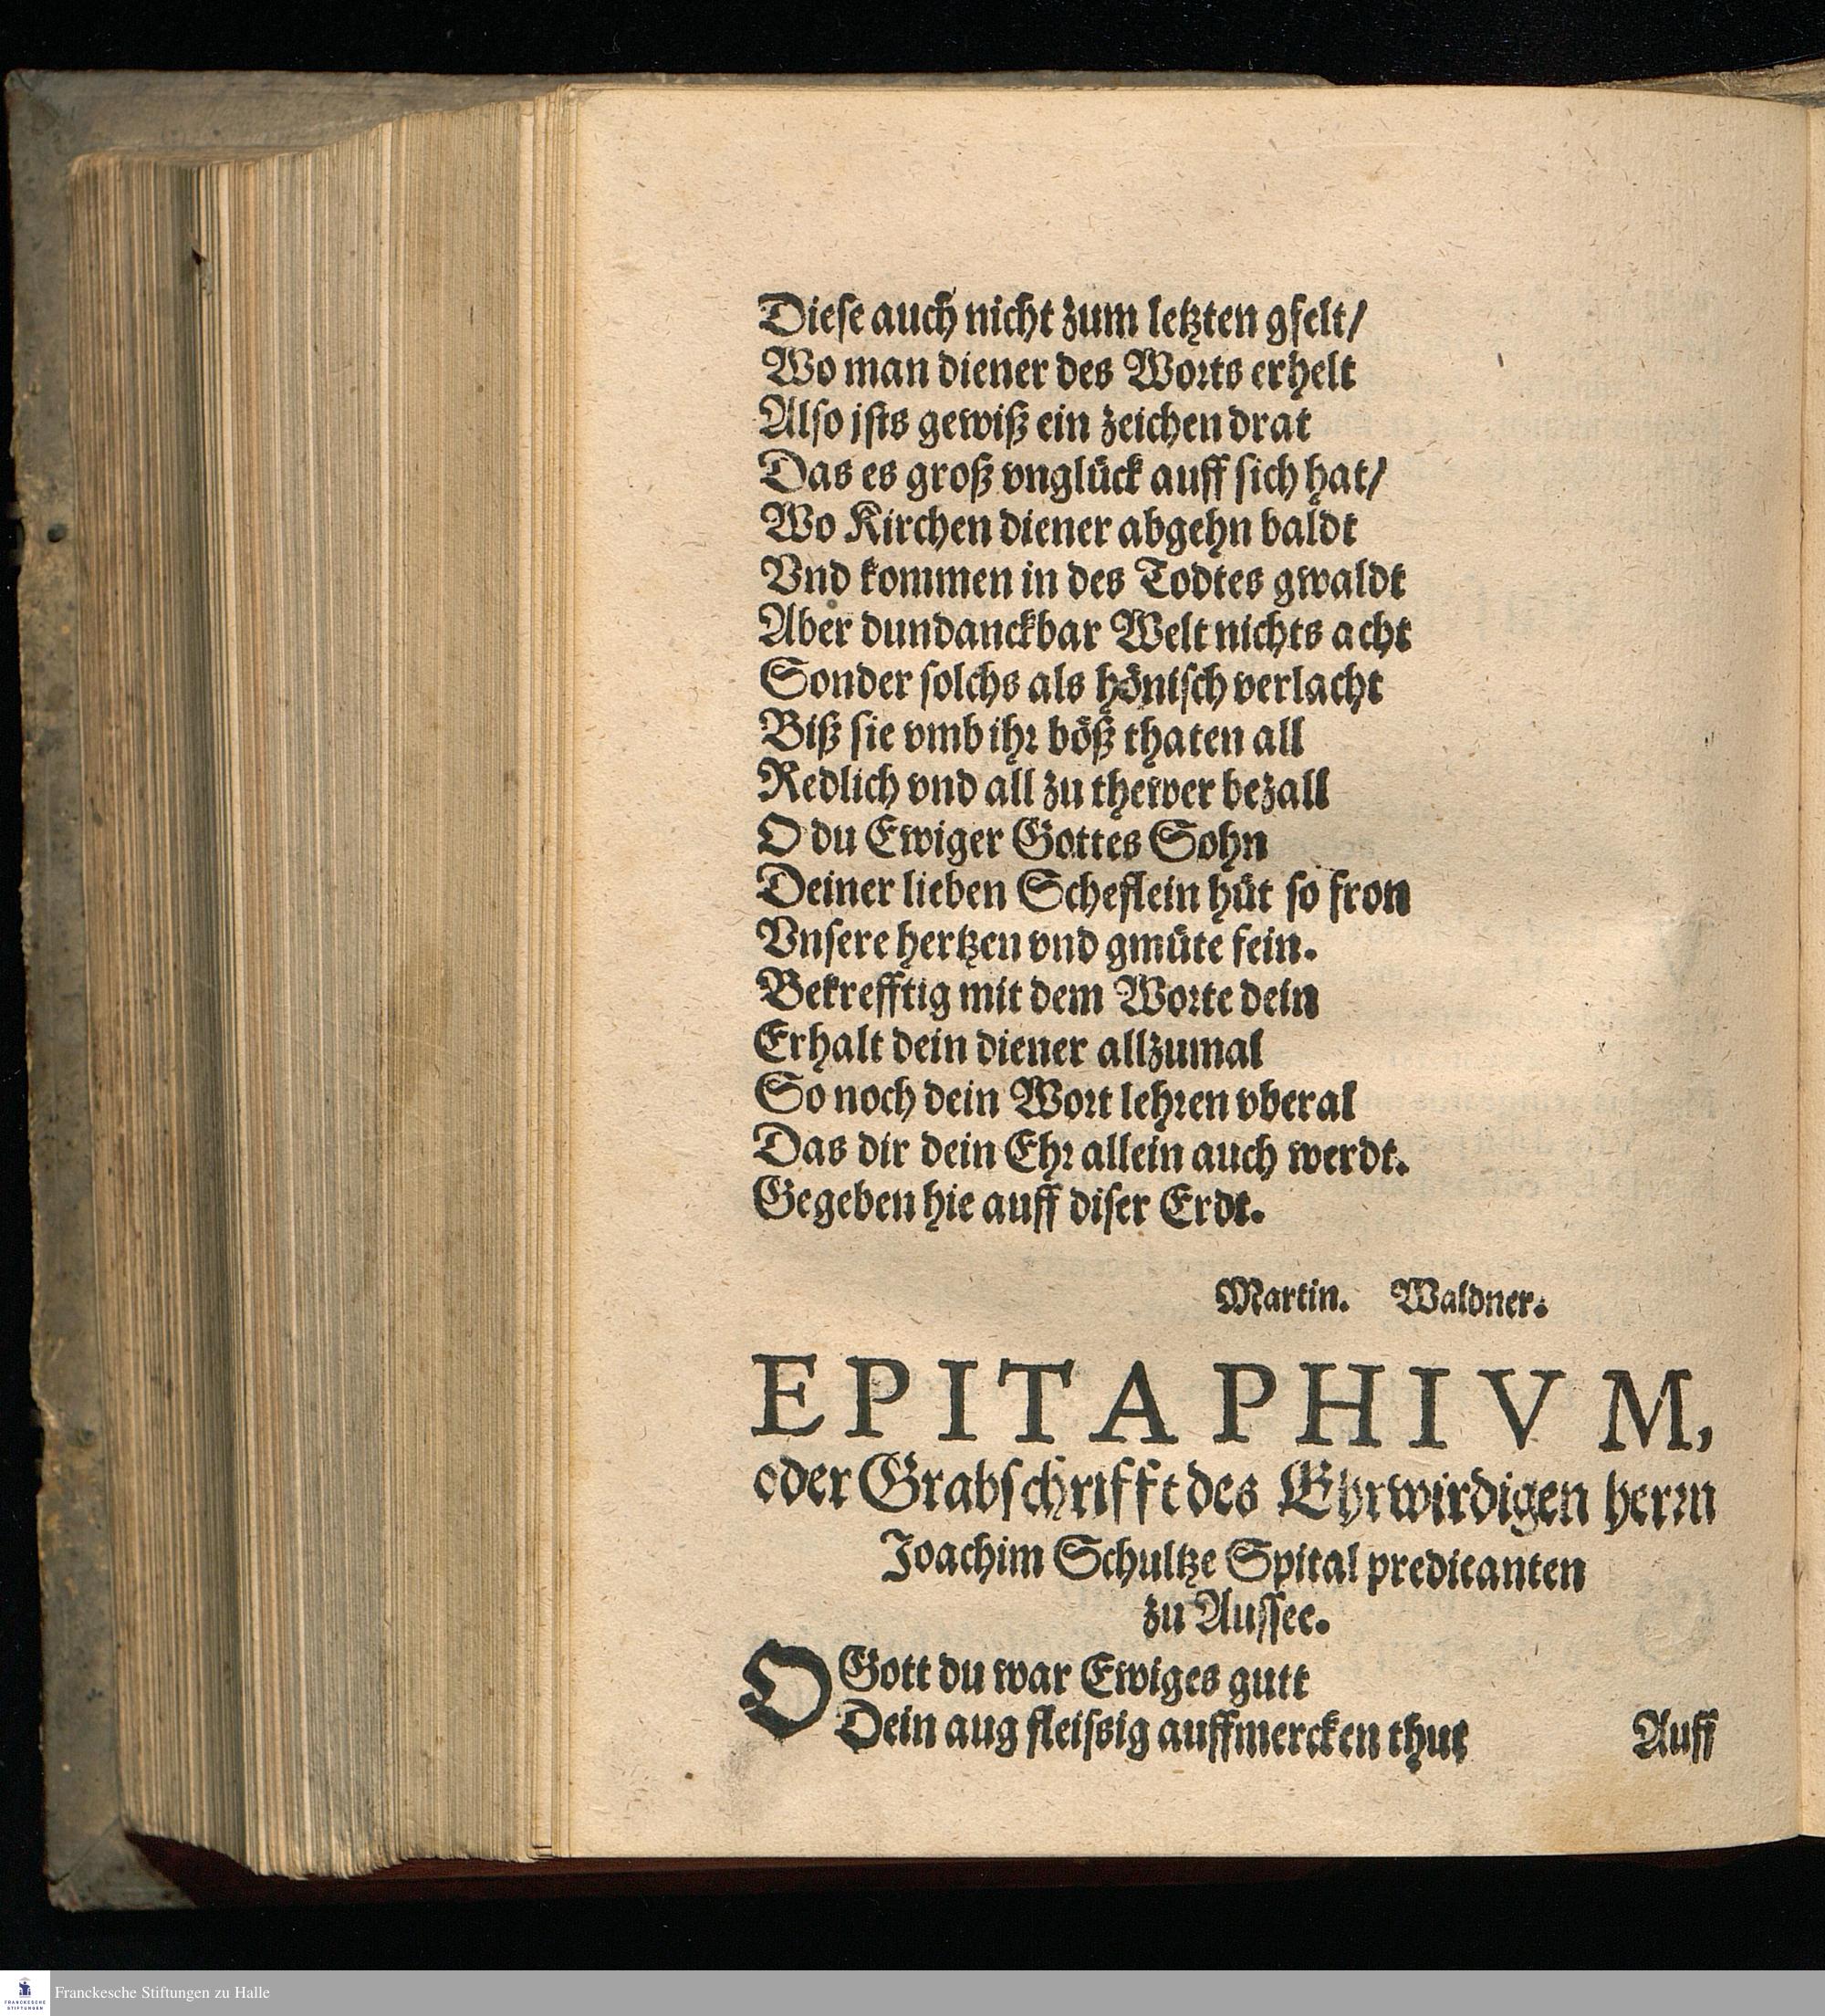 Diese auch nicht zum letzten gfelt/
Wo man diener des Worts erhelt
Also jsts gewiß ein zeichen drat
Das es groß vnglück auff sich hat/
Wo Kirchen diener abgehn baldt
Vnd kommen in des Todtes gwaldt
Aber dundanckbar Welt nichts acht
Sonder solchs als hönisch verlacht
Biß sie vmb ihr böß thaten all
Redlich vnd all zu thewer bezall
O du Ewiger Gottes Sohn
Deiner lieben Scheflein hüt so fron
Vnsere hertzen vnd gmüte fein.
Bekrefftig mit dem Worte dein
Erhalt dein diener allzumal
So noch dein Wort lehren vberal
Das dir dein Ehr allein auch werdt.
Gegeben hie auff diser Erdt.
Martin. Waldner.
EPITAPHIVM,
oder Grabschrifft des Ehrwirdigen herrn
Joachim Schultze Spital predicanten
zu Aussee.
O Gott du war Ewiges gutt
Dein aug fleissig auffmercken thut
Auff
FRANCKESCHE STIFTUNGEN
Franckesche Stiftungen zu Halle